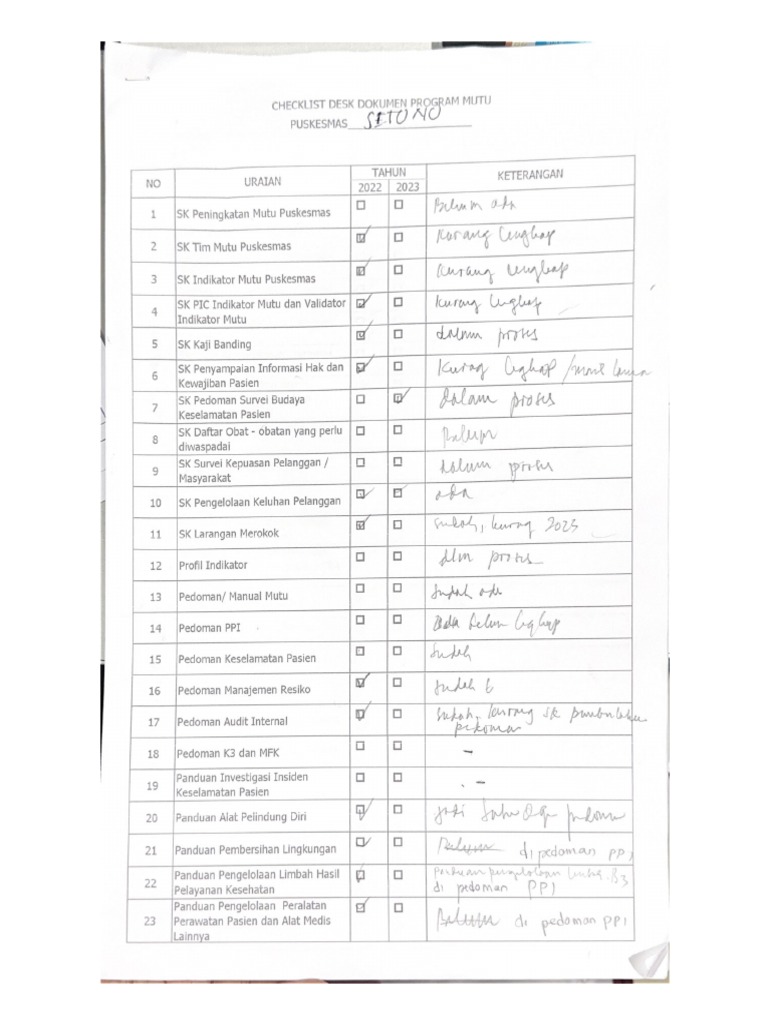 CHECKLIST DESK DOKUMEN PROGRAM MUTU
PUSKESMAS SITONO
NO URAIAN TAHUN KETERANGAN
2022 2023
1 SK Peningkatan Mutu Puskesmas Belum ada
2 SK Tim Mutu Puskesmas Kurang lengkap
3 SK Indikator Mutu Puskesmas Kurang lengkap
4 SK PIC Indikator Mutu dan Validator Kurang lengkap
Indikator Mutu
5 SK Kaji Banding dalam proses
6 SK Penyampaian Informasi Hak dan Kurag lghap
Kewajiban Pasien
7 SK Pedoman Survei Budaya dalam proses
Keselamatan Pasien
8 SK Daftar Obat - obatan yang perlu Belum
diwaspadai
9 SK Survei Kepuasan Pelanggan / dalam proses
Masyarakat
10 SK Pengelolaan Keluhan Pelanggan ada
11 SK Larangan Merokok sudah, kurag 2023
12 Profil Indikator dlm proses
13 Pedoman/ Manual Mutu Sudah ada
14 Pedoman PPI belum lghap
15 Pedoman Keselamatan Pasien Sudah
16 Pedoman Manajemen Resiko Sudah
17 Pedoman Audit Internal Sudah, kurang SK
pedoman
18 Pedoman K3 dan MFK -
19 Panduan Investigasi Insiden -
Keselamatan Pasien
20 Panduan Alat Pelindung Diri jadi satu dgn pedoman
21 Panduan Pembersihan Lingkungan Belum di pedoman PPI
22 Panduan Pengelolaan Limbah Hasil Panduan pengelolaan limba B3
Pelayanan Kesehatan di pedoman PPI
23 Panduan Pengelolaan Peralatan Belum di pedoman PPI
Perawatan Pasien dan Alat Medis
Lainnya